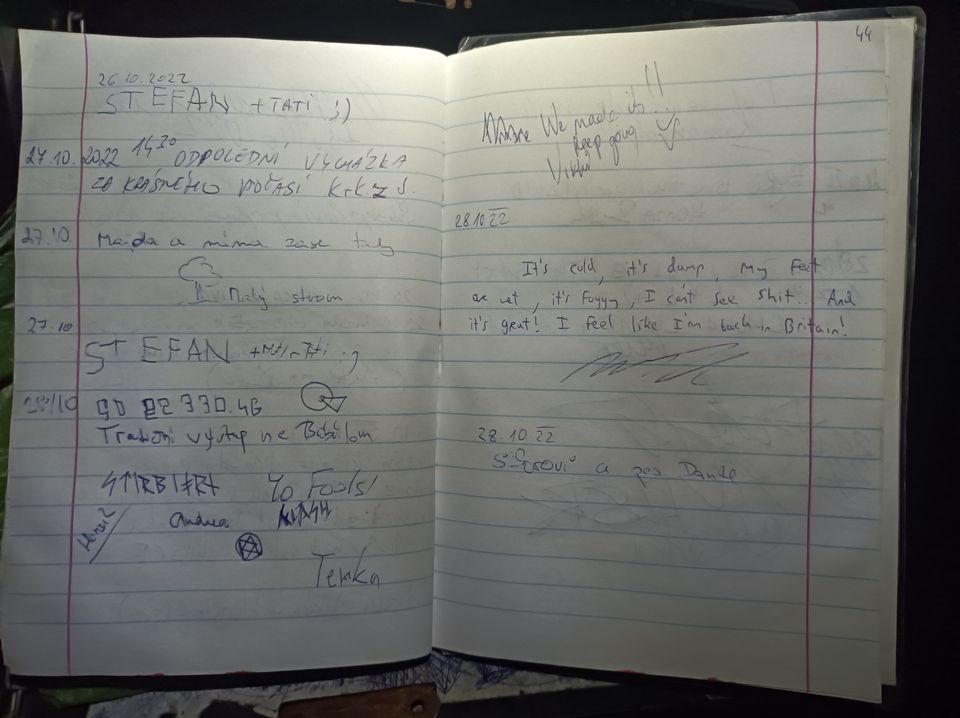 26.10.2022
STEFAN + TATI ;)
27.10.2022 14 30 ODPOLEDNÍ VYCHÁZKA
ZA KRÁSNÉHO POČASÍ K+K z J.
27.10. Majda a máma zase tady
Malý strom
27.10
STEFAN
28/10
Tradiční výstup na
Yo Fools!
Andrea
Terka
44
We made it!!
keep going
Viktor
28.10.22
It's cold, it's dump, My feet
are wet, it's foggy, I can't see shit... And
it's great! I feel like I'm back in Britain!
28.10 22
a pes